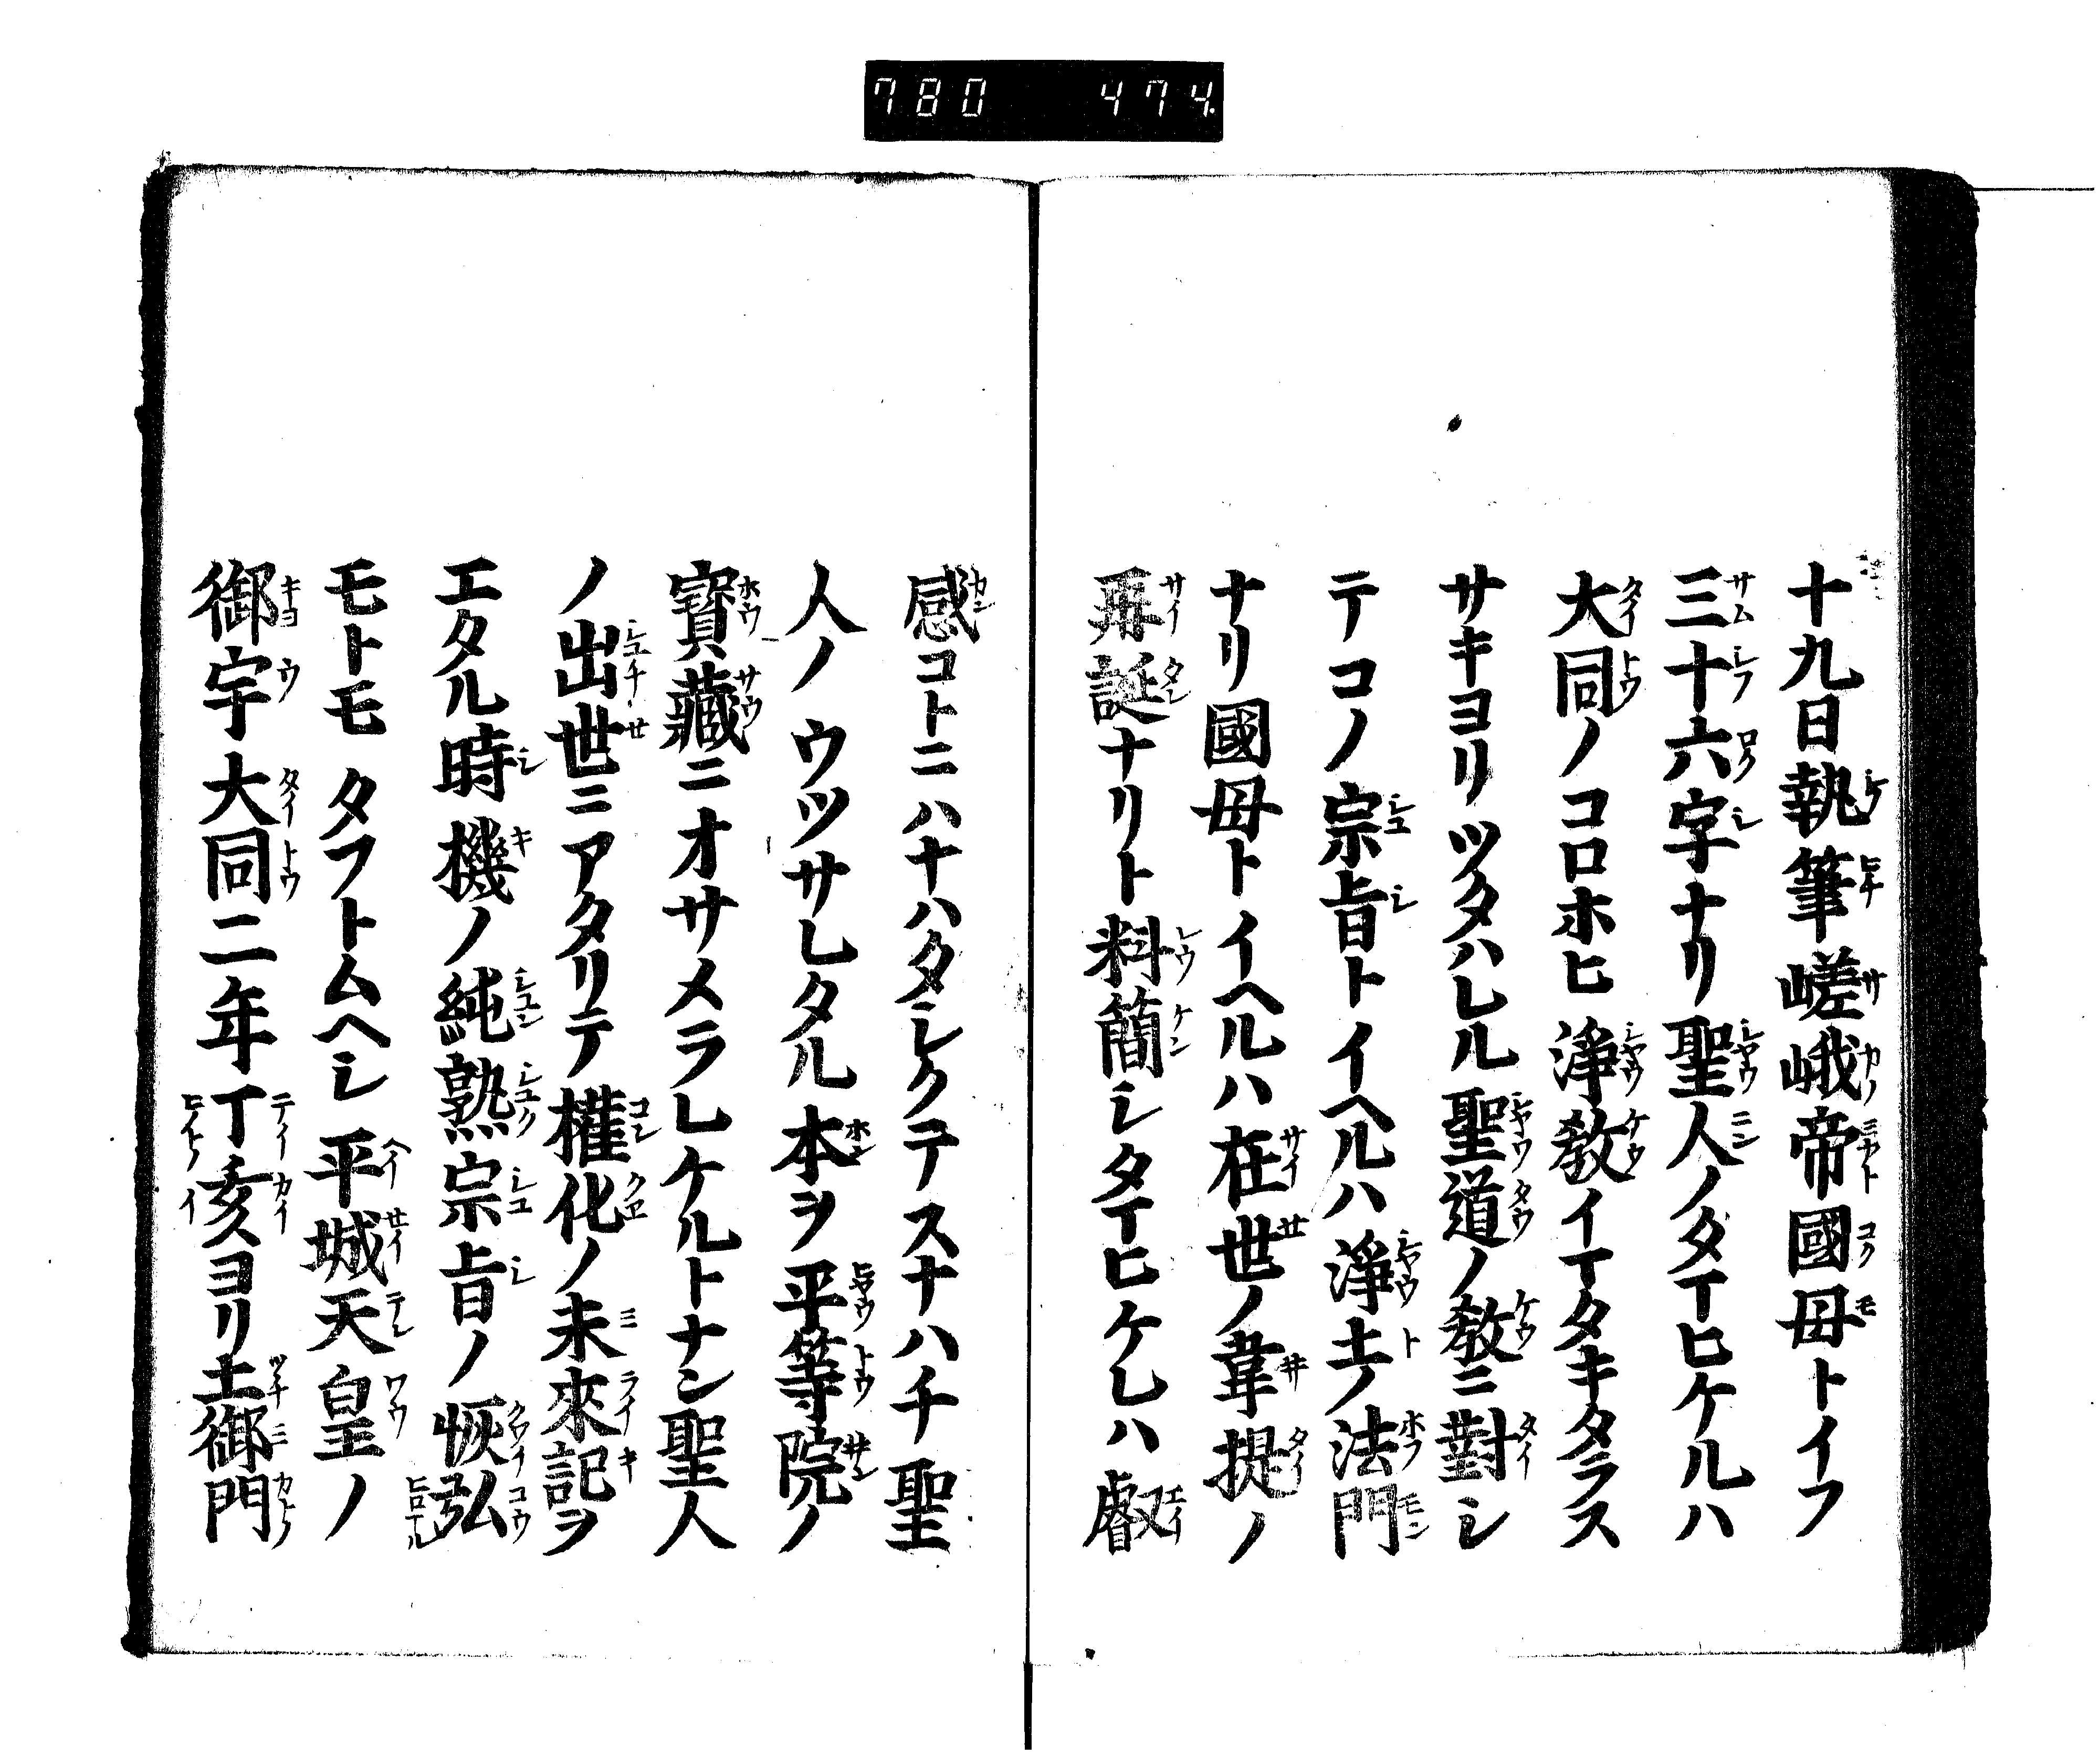 780 474
十九日執筆嵯峨帝國母トイフ
三十六字ナリ聖人ノタマヒケルハ
大同ノコロホヒ淨教イマタキタラス
サキヨリツタハレル聖道ノ教ニ對シ
テコノ宗旨トイヘルハ淨土ノ法門
ナリ國母トイヘルハ在世ノ韋提ノ
再誕ナリト料簡シタマヒケレハ叡
感コトニハナハタシクテスナハチ聖
人ノウツサレタル本ヲ平等院ノ
寶藏ニオサメラレケルトナン聖人
ノ出世ニアタリテ權化ノ未來記ヲ
エタル時機ノ純熟宗旨ノ恢弘
モトモタフトムヘシ平城天皇ノ
御宇大同二年丁亥ヨリ土御門